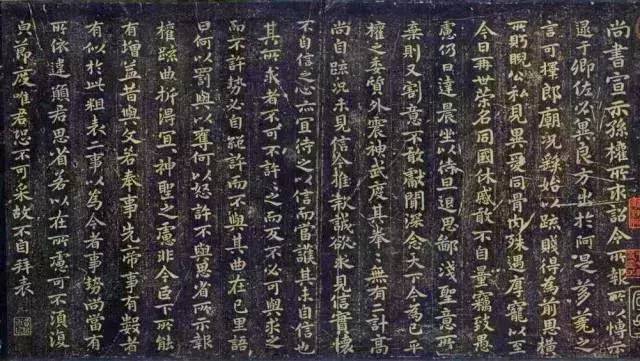 尚書宣示孫權所求詔令所報所以博示
逮于卿佐必冀良方出於阿是芻蕘之
言可擇郎廟況繇始以疏賤得為前恩橫
所盱睨公私見異愛同骨肉殊遇厚寵以至
今日再世榮名同國休慼敢不自量竊致愚
慮仍日達晨坐以待旦退思鄙淺聖意所
棄則又割意不敢獻聞深念天下今為已平
權之委質外震神武度其拳拳無有二計高
尚自疏況未見信今推款誠欲求見信實懷
不自信之心亦宜待之以信而當護其未自信也
其所求者不可不許許之而反不必可與求之
而不許勢必自絕許而不與其曲在己里語
曰何以罰與以奪何以怒許不與思省所示報
權疏曲折得宜宜神聖之慮非今臣下所能
有增益昔與文若奉事先帝事有數者
有似於此粗表二事以為今者事勢尚當有
所依違願君思省若以在所慮可不須復
貌節度唯君恐不可采故不自拜表